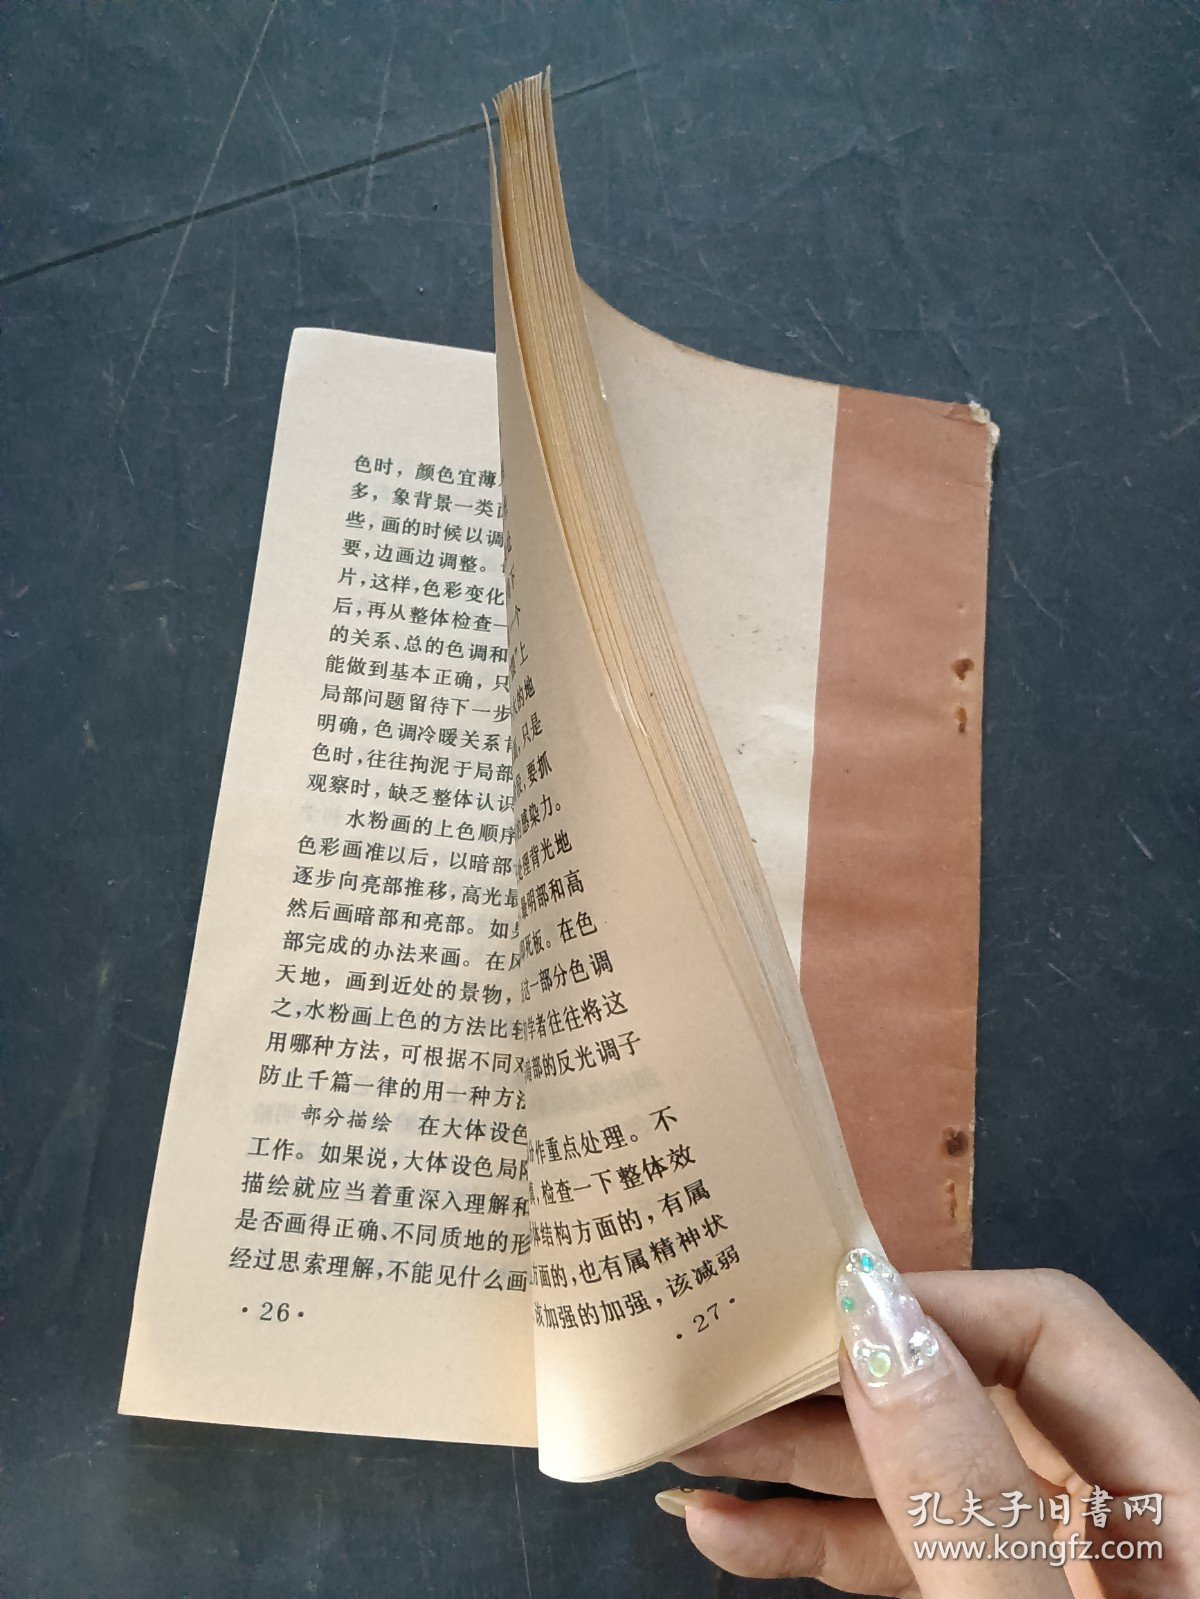 色时，颜色宜薄
多，象背景一类
些，画的时候以调
要，边画边调整。
片，这样，色彩变化
后，再从整体检查一
的关系、总的色调和
能做到基本正确，只
局部问题留待下一步
明确，色调冷暖关系
色时，往往拘泥于局部
观察时，缺乏整体认识
水粉画的上色顺序
色彩画准以后，以暗部
逐步向亮部推移，高光最
然后画暗部和亮部。如
部完成的办法来画。在
天地，画到近处的景物，
之，水粉画上色的方法比较
用哪种方法，可根据不同
防止千篇一律的用一种方法
部分描绘　在大体设色
工作。如果说，大体设色局限
描绘就应当着重深入理解和
是否画得正确、不同质地的形
经过思索理解，不能见什么画
·26·
个
”上
的地
，只是
，要抓
的感染力。
处理背光地
最明部和高
死板。在色
这一部分色调
学者往往将这
暗部的反光调子
作重点处理。不
，检查一下整体效
体结构方面的，有属
方面的，也有属精神状
该加强的加强，该减弱
·27·
孔夫子旧书网
www.kongfz.com